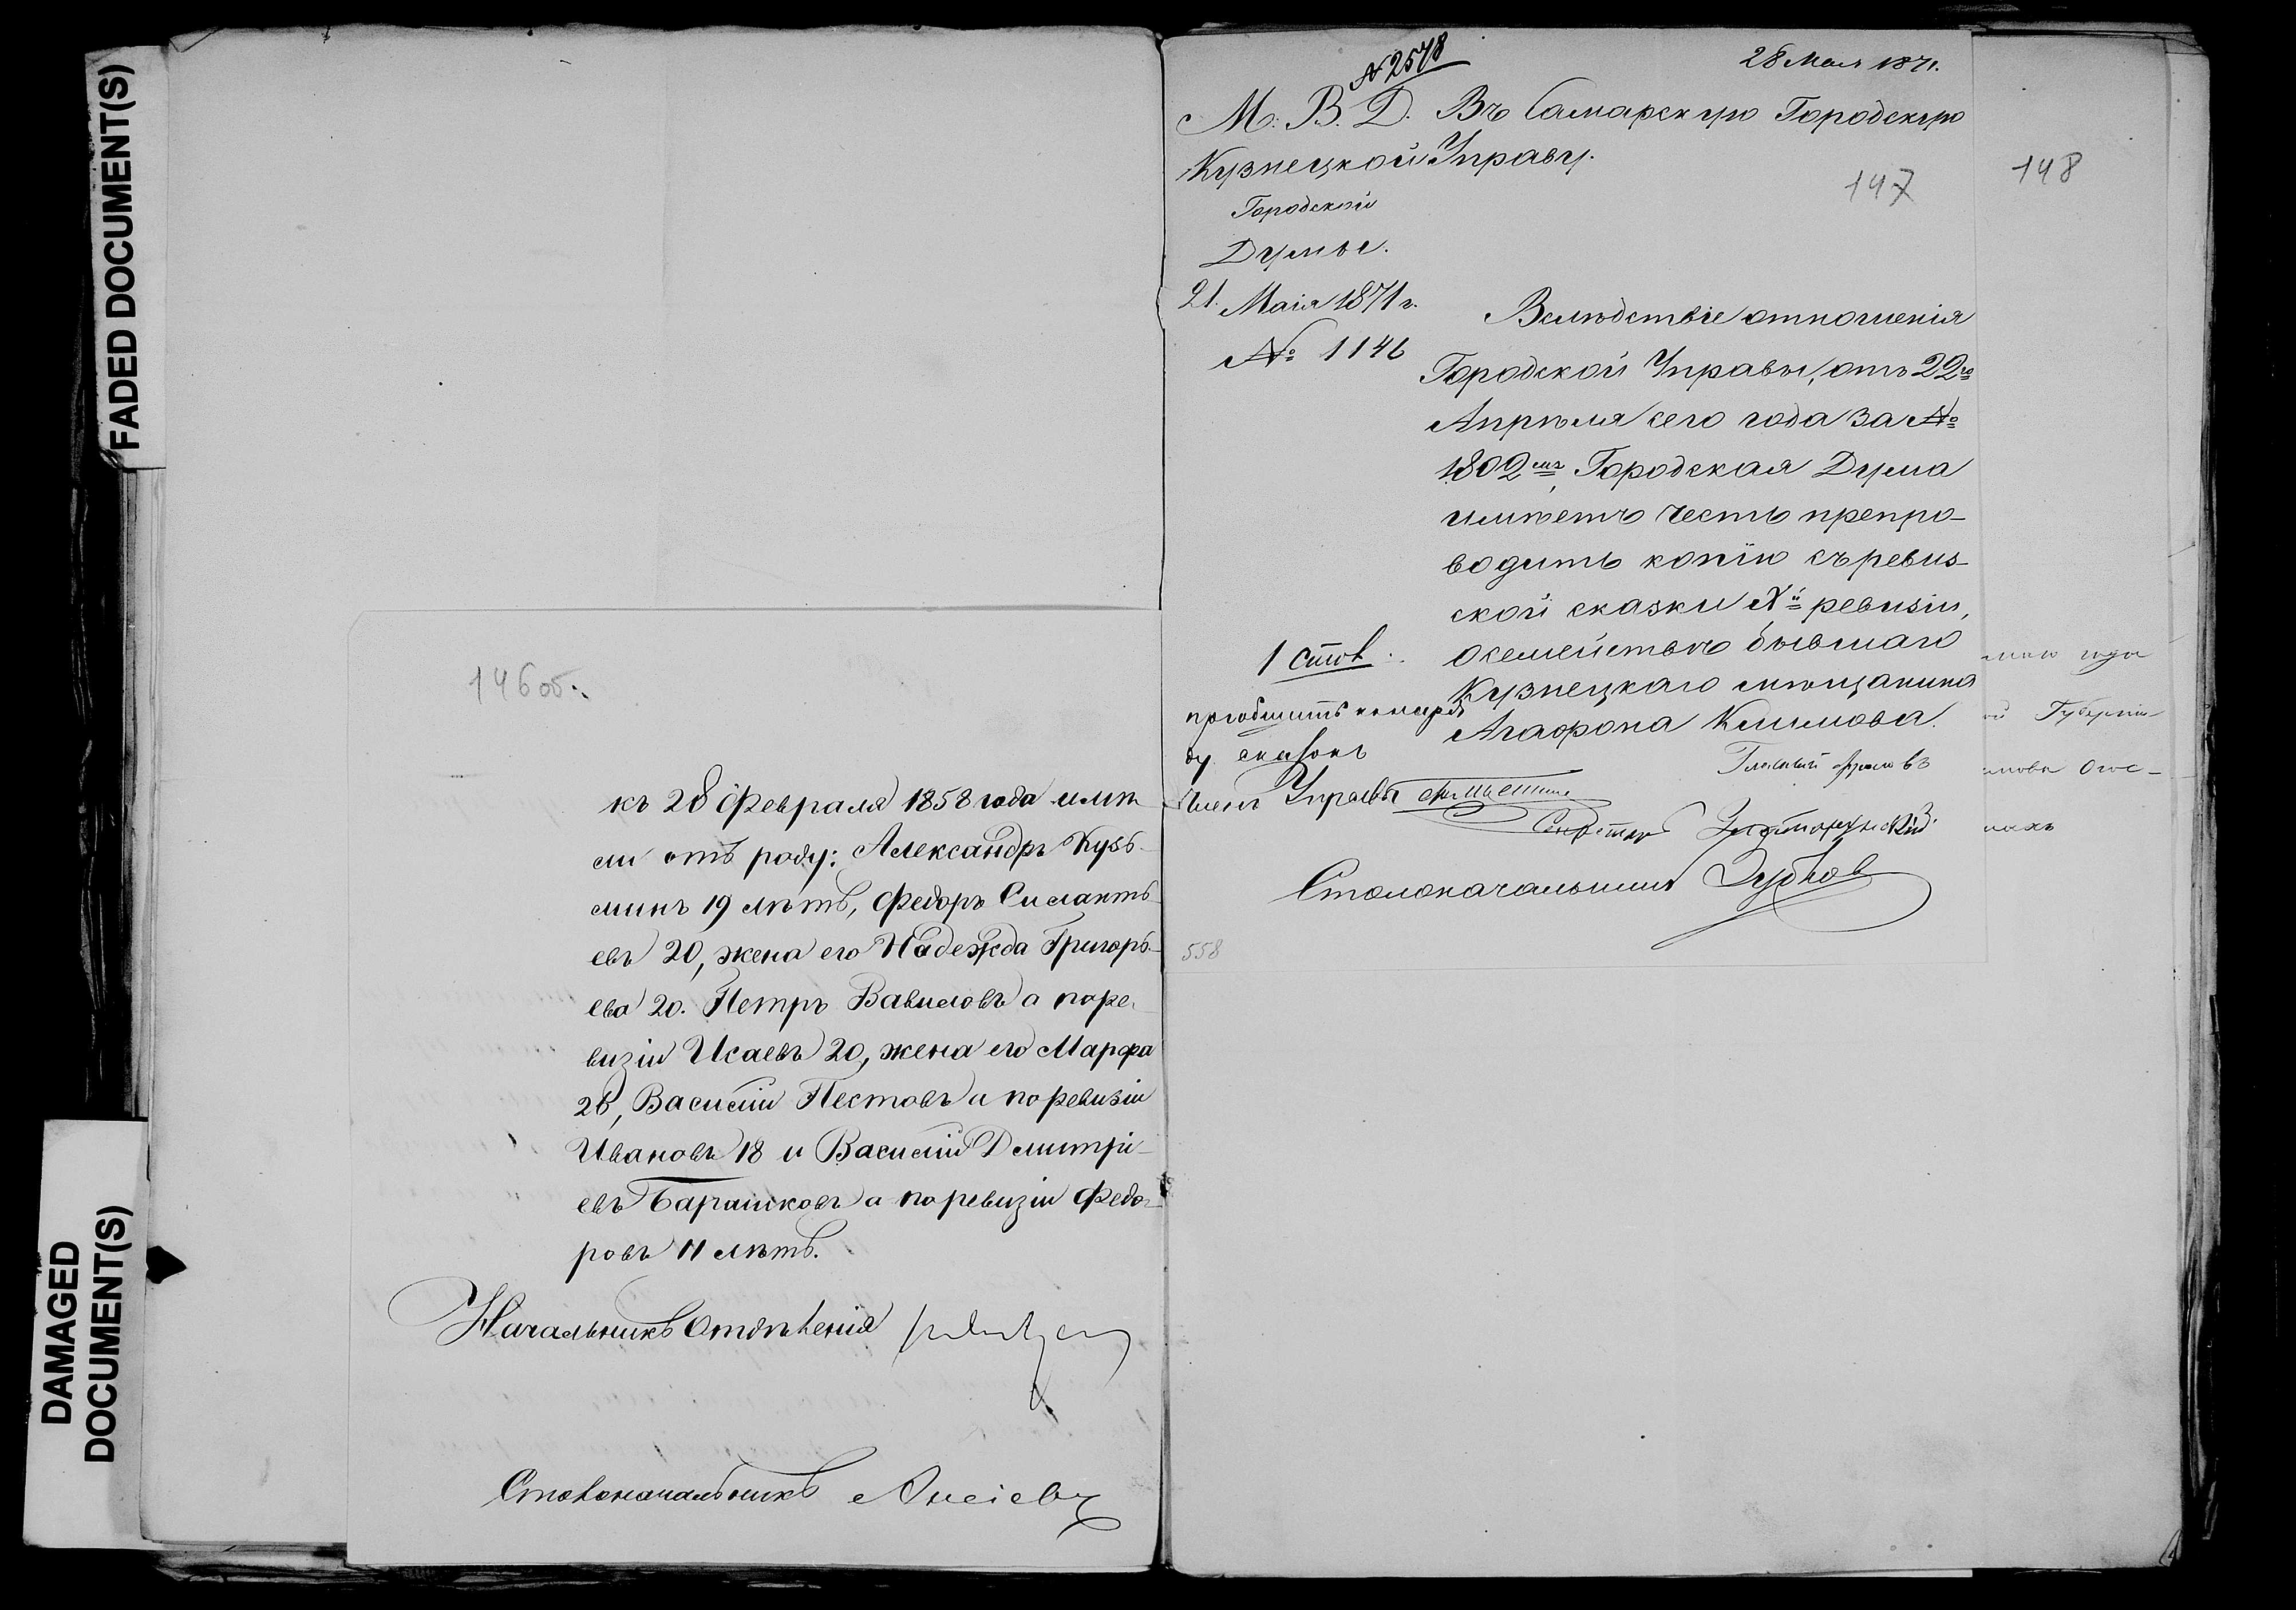 FADED DOCUMENT(S)
DAMAGED
DOCUMENT(S)
146 об.
къ 28 Февраля 1858 года имѣ
ли отъ роду: Александръ Кузь-
минъ 19 лѣтъ, Федоръ Силанть
евъ 20, жена его Надежда Григорь-
ева 20. Петръ Вавиловъ а поре-
визіи Исаевъ 20, жена его Марфа
Василій Пестовъ а поревизіи
Ивановъ 18 и Василій Дмитрі-
евъ Барашковъ а поревизіи Федо-
ровъ 11 лѣтъ.
Начальникъ Отдѣленія
Столоначальникъ
№ 2578
28 Мая 1871.
М. В. Д.
Кузнецкой
Городской
Думы.
21. Маія 1871 г.
№ 1146
Въ Самарскую Городскую
Управу.
147
148
Вслѣдствіе отношенія
Городской Управы, отъ 22го
Апрѣля сего года за №
1802мъ, Городская Дума
имѣетъ честь препро-
водить копію съ ревиз-
ской сказки Хй ревизіи,
о семействѣ бывшаго
Кузнецкаго мѣщанина
Агафона Климова.
1 стол.
ду сказокъ
Членъ Управы
Секретарь
Столоначальникъ Зубков
558
года
Губерніи